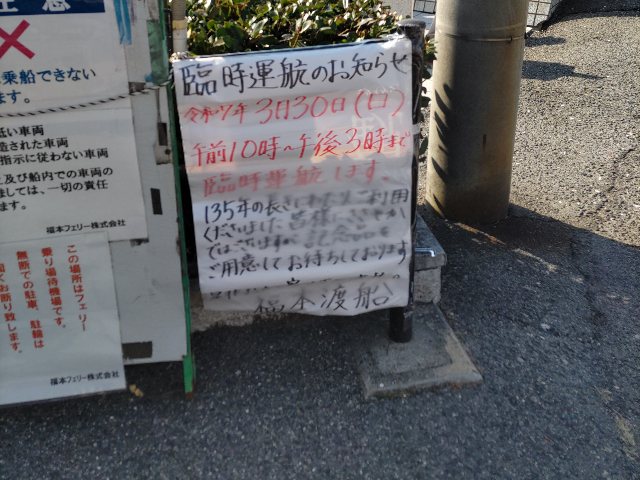 臨時運航のお知らせ
令和7年3月30日(日)
午前10時〜午後3時まで
臨時運航します。
135年の長きにわたりご利用
くださいました皆様にささやか
ではございますが記念品を
ご用意してお待ちしております
福本渡船
注意
×
乗船できない
ます。
車両
造された車両
指示に従わない車両
及び船内での車両の
ましては、一切の責任
ます。
福本フェリー株式会社
この場所はフェリー
乗り場待機場です。
無断での駐車、駐輪は
お断り致します。
福本フェリー株式会社